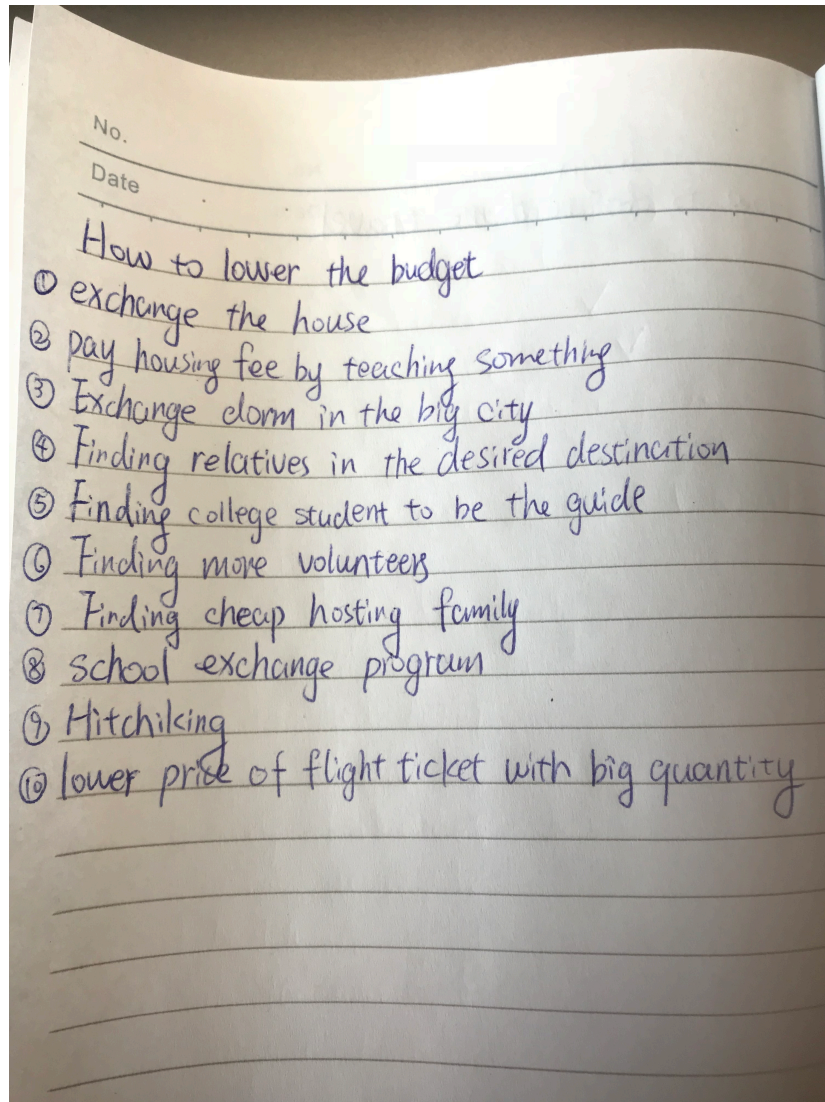 No.
Date
How to lower the budget
① exchange the house
② pay housing fee by teaching something
③ Exchange dorm in the big city
④ Finding relatives in the desired destination
⑤ Finding college student to be the guide
⑥ Finding more volunteers
⑦ Finding cheap hosting family
⑧ school exchange program
⑨ Hitchiking
⑩ lower price of flight ticket with big quantity